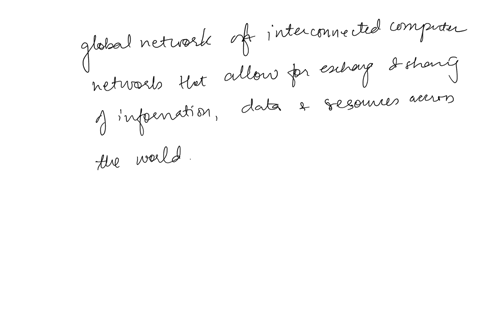 global network of interconnected computer
networks that allow for exchang & sharing
of information, data & resources across
the world.